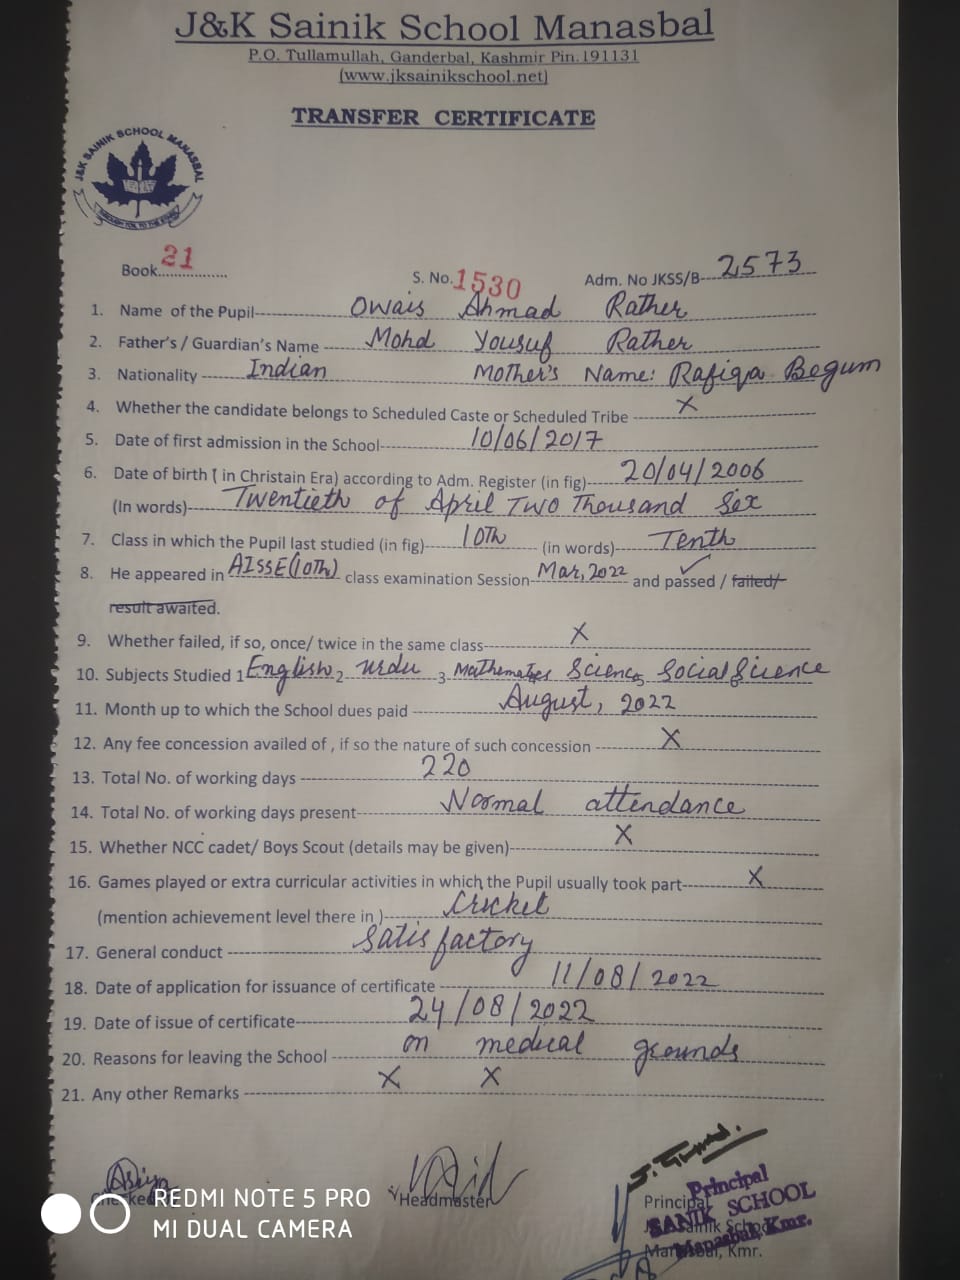 J&K Sainik School Manasbal
P.O. Tullamullah, Ganderbal, Kashmir Pin.191131
(www.jksainikschool.net)
TRANSFER CERTIFICATE
J&K SAINIK SCHOOL MANASBAL
Book 21 S. No. 1530 Adm. No JKSS/B- 2573
1. Name of the Pupil Owais Ahmad Rather
2. Father's / Guardian's Name Mohd Yousuf Rather
3. Nationality Indian Mother's Name: Rafiqa Begum
4. Whether the candidate belongs to Scheduled Caste or Scheduled Tribe X
5. Date of first admission in the School 10/06/2017
6. Date of birth ( in Christain Era) according to Adm. Register (in fig) 20/04/2006
(In words) Twentieth of April Two Thousand Six
7. Class in which the Pupil last studied (in fig) 10Th (in words) Tenth
8. He appeared in AISSE(10Th) class examination Session Mar, 2022 and passed / failed/
result awaited.
9. Whether failed, if so, once/ twice in the same class X
10. Subjects Studied 1 English 2 urdu 3 Mathematics Science 5 Social Science
11. Month up to which the School dues paid August, 2022
12. Any fee concession availed of , if so the nature of such concession X
13. Total No. of working days 220
14. Total No. of working days present Normal attendance
15. Whether NCC cadet/ Boys Scout (details may be given) X
16. Games played or extra curricular activities in which the Pupil usually took part X
(mention achievement level there in ) Cricket
17. General conduct Satisfactory
18. Date of application for issuance of certificate 11/08/2022
19. Date of issue of certificate 24/08/2022
20. Reasons for leaving the School on medical grounds
21. Any other Remarks X X
Headmaster
Principal
Principal
SANIK SCHOOL
Manasbal, Kmr.
Manasbal, Kmr.
REDMI NOTE 5 PRO
MI DUAL CAMERA